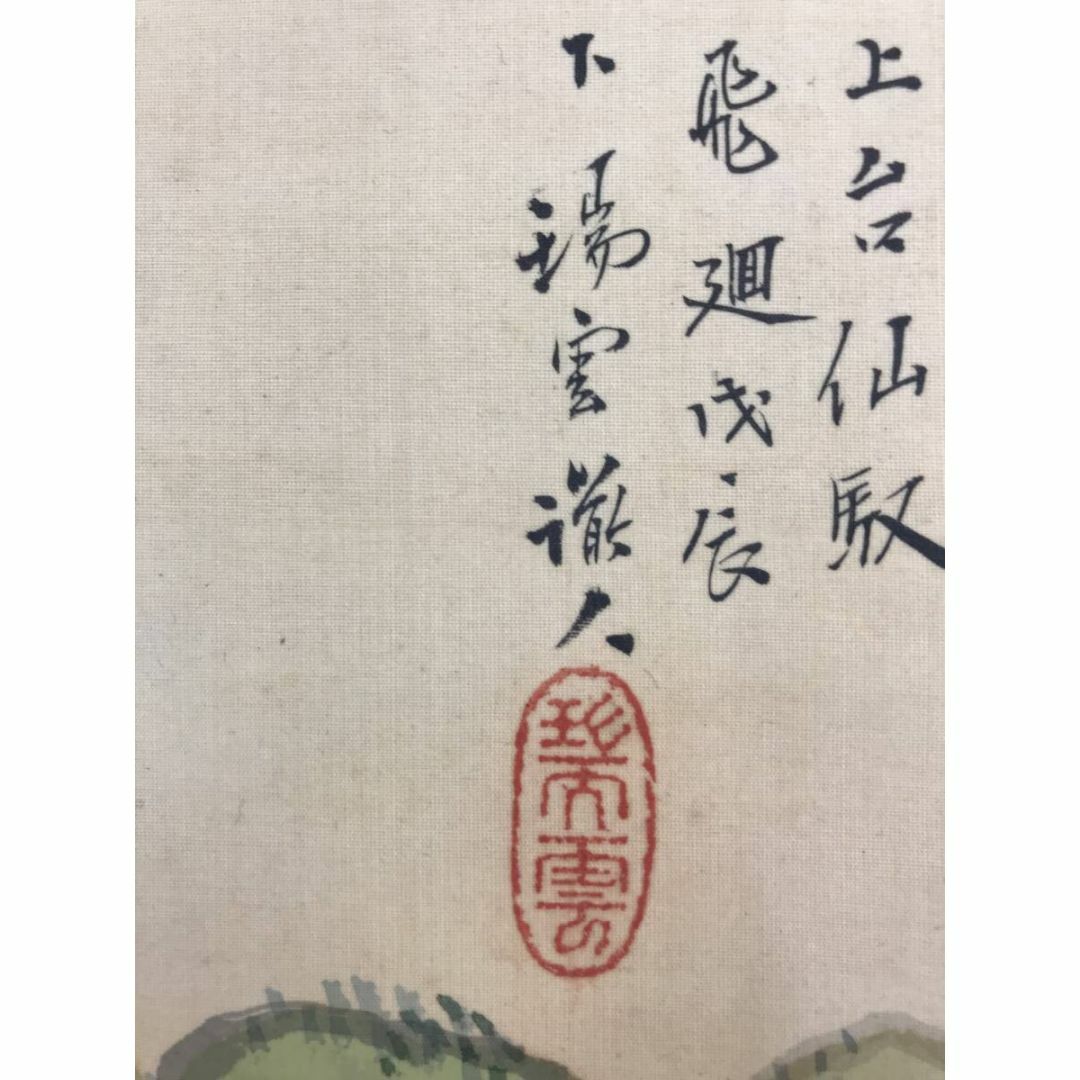 上台仙馭
飛廻戊辰
下瑞雲人
雲